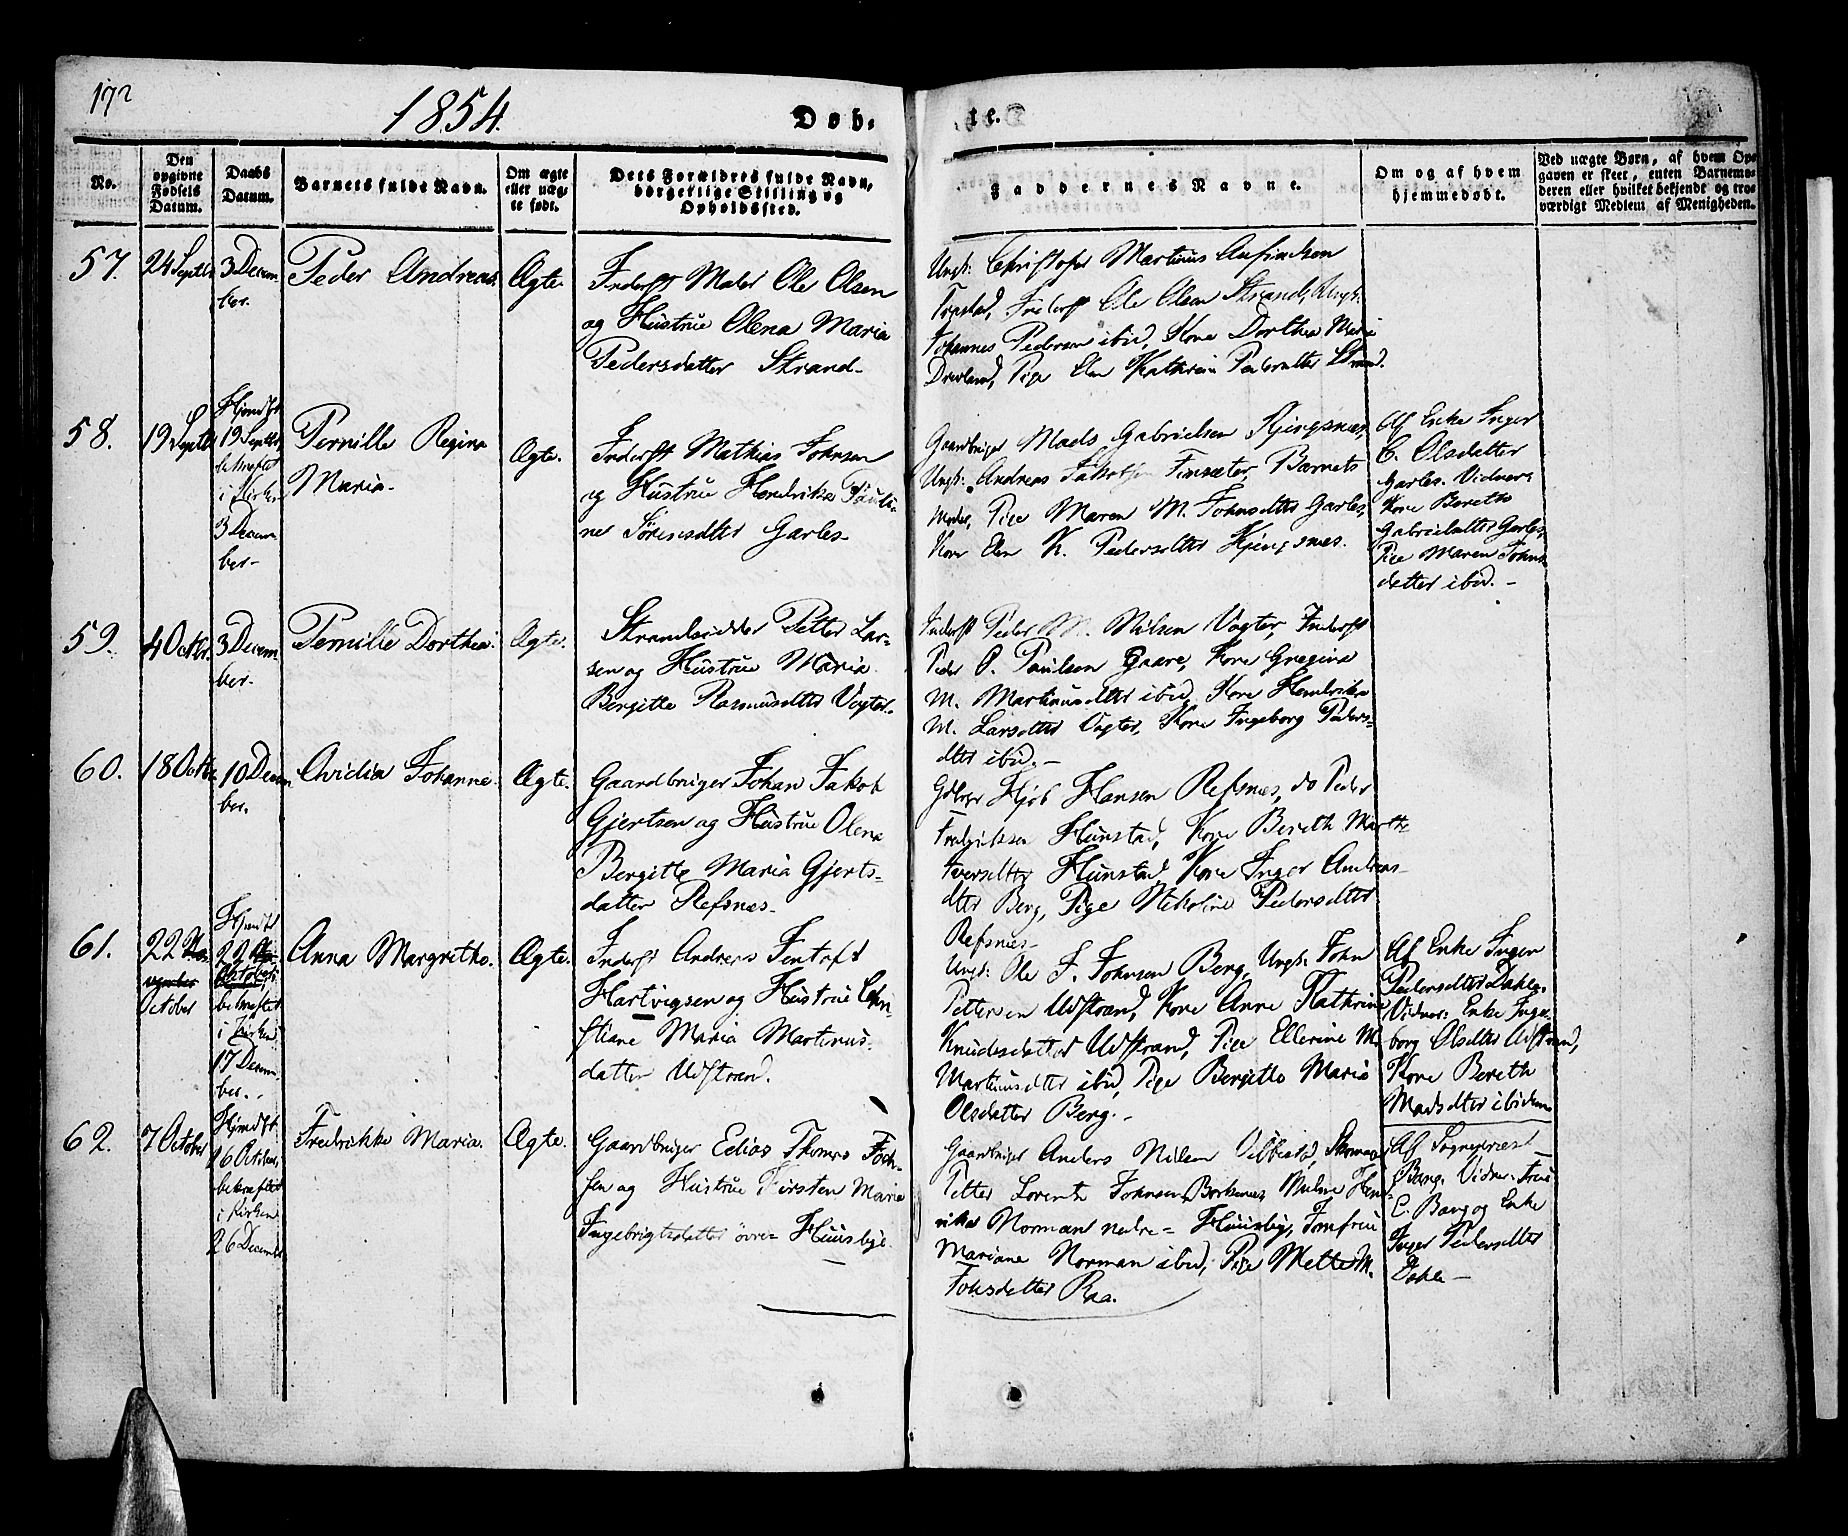 172
1854.
Døb-
te.
No.
Den
opgivne
Fødsels
Datum.
Daabs
Datum.
Barnets fulde Navn.
Om ægte
eller uæg-
te født.
Dets Forældres fulde Navn,
borgerlige Stilling og
Opholdssted.
Faddernes Navne.
Om og af hvem
hjemmedøbt.
Ved uægte Børn, af hvem Op-
gaven er skeet, enten Barnemo-
deren eller hvilket bekjendt og tro-
værdigt Medlem af Menigheden.
57.
24 Septbr
3 Decem
ber.
Peder Andreas.
Ægte.
Inderst Maler Ole Olsen
og Hustrue Olena Maria
Pedersdatter Strand-
Ungk: Christofer Martinus Anfindsen
Inderst Ole Olsen Strand, Ungk:
Johannes Pedersen ibid, Kone Dorthea Maria
Pige Elen Kathrine Pedersdtter Strand.
58.
19 Septbr
Hjemdbt
19 Septbr,
bekræftet
i Kirken
3 Decem
ber-
Pernille Regina
Maria-
Ægte.
Inderst Mathias Johnsen
og Hustrue Hendrikke Pauli-
ne Sørensdtter Garles-
Gaardbruger Mads Gabrielsen Kjingsnæs,
Ungk: Andreas Jakobsen Finsæter, Barnets
Moder, Pige Maren M. Johnsdtter Garles,
Kone Elen K. Pedersdtter Kjengsnæs.
Af Enke Inger
C. Olsdatter
Garles. Vidner:
Kone Berethe
Gabrielsdtter Garles,
Pige Maren Johns
datter ibid. -
59.
4 Octbr.
3 Decem
ber.
Pernille Dorthea.
Ægte.
Strandsidder Petter Lar-
sen og Hustrue Maria
Bergitte Rasmusdtter Vogter-
Inderst Peder M. Nilsen Vogter, Inderst
Peder O. Paulsen Gaare, Kone Gregina
M. Martinusdtter ibid, Kone Hendrikke
M. Larsdtter Vogter, Kone Ingeborg Peders-
dtter ibid. -
60.
18 Octbr
10 Decem
ber.
Ovidia Johanne.
Ægte.
Gaardbruger Johan Jakob
Gjertsen og Hustrue Olena
Bergitte Maria Gjerts-
datter Refsnes-
Gdbrgr Hjøb Hansen Refsnes, do Peder
Fredriksen Hunstad, Kone Bereth Marth
Iversdtter Hunstad, Kone Inger Andreas-
dtter Berg, Pige Nikoline Pedersdtter
Refsnes-
61.
22 No-
vember
October
Hjemdbt
22
Oktober,
bekræftet
i Kirken
17 Decem-
ber. -
Anna Margrethe.
Ægte.
Inderst Andreas Jentoft
Hartvigsen og Hustrue Chri-
stiane Maria Martinus-
datter Udstrand.
Ungk: Ole J. Johnsen Berg, Ungk: John
Pettersen Udstrand, Kone Anne Kathrine
Knudesdatter Udstrand, Pige Ellerine M.
Martinusdtter ibid, Pige Bergitte Maria
Olsdatter Berg. -
Af Enke Inger
Pedersdtter Dahle.
Vidner: Enke Inge-
borg Olsdtter Udstrand,
Kone Bereth
Madsdtter ibidem
62.
7 October
Hjemdbt
16 October,
bekræftet
i Kirken
26 December
Fredrikke Maria.
Ægte.
Gaardbruger Edias Thomas Joch-
sen og Hustrue Kirsten Maria
Ingebrigtsdatter øvre- Huusbye.
Gaardbruger Anders Nilsen
Petter Lorentz Johnsen Borkenes, Madme Hen-
rikke Norman nedre- Huusby, Jomfrue
Mariane Norman ibid, Pige Mette M.
Johsdatter Raa.
Af Sognepræst
Bang. Vidner: Frue
E. Bang og Enke
Inger Pedersdtter
Dahle-